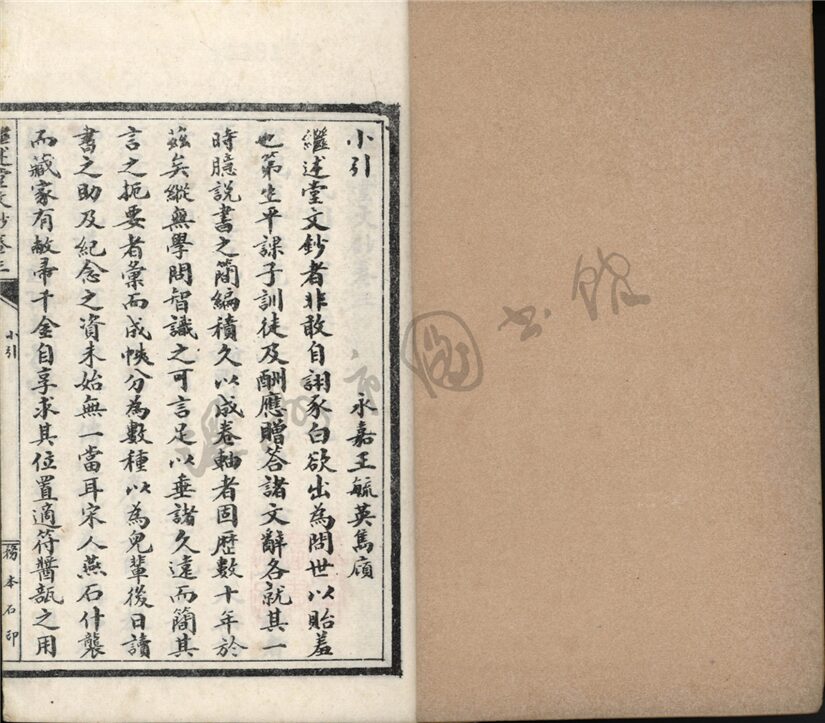 小引
永嘉王毓英雋廎
繼述堂文鈔者非敢自詡豕白欲出為問世以貽羞
也第生平課子訓徒及酬應贈答諸文辭各就其一
時臆說書之簡編積久以成卷軸者固歷數十年於
茲矣縱無學問智識之可言足以垂諸久遠而簡其
言之扼要者彙而成帙分為數種以為兒輩後日讀
書之助及紀念之資未始無一當耳宋人燕石什襲
而藏家有敝帚千金自享求其位置適符醬瓿之用
繼述堂文鈔卷三
小引
務本石印
溫州市圖書館